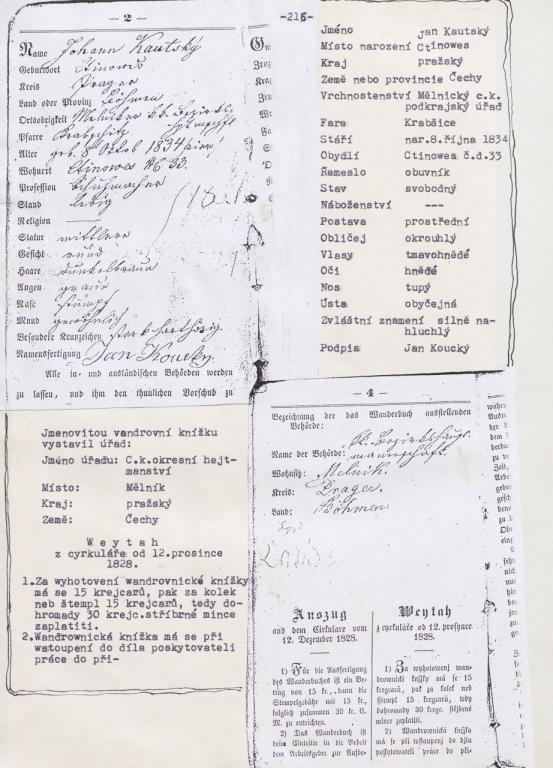 — 2 —
Name Johann Kautský
Geburtsort Ctinowes
Kreis Prager
Land oder Provinz Böhmen
Ortsobrigkeit Melniker kk. Bezirks
Pfarre Krabschitz
Alter geb. 8 Oktob 1834
Wohnort Ctinowes No 33.
Profession Schuhmacher
Stand ledig
Religion
Statur mittlere
Gesicht rund
Haare dunkelbraun
Augen graue
Nase stumpf
Mund gewöhnlich
Besondere Kennzeichen stark harthörig.
Namensfertigung Jan Koucky.
Alle in- und ausländischen Behörden werden
zu lassen, und ihm den thunlichen Vorschub zu
-215-
Jméno jan Kautský
Místo narození Ctinowes
Kraj pražský
Země nebo provincie Čechy
Vrchnostenství Mělnický c.k.
podkrajský úřad
Fara Krabšice
Stáří nar.8.října 1834
Obydlí Ctinowes č.d.33
Řemeslo obuvník
Stav svobodný
Náboženství ---
Postava prostřední
Obličej okrouhlý
Vlasy tmavohnědé
Oči hnědé
Nos tupý
Ústa obyčejná
Zvláštní znamení silně na-
hluchlý
Podpis Jan Koucký
Jmenovitou vandrovní knížku
vystavil úřad:
Jméno úřadu: C.k.okresní hejt-
manství
Místo: Mělník
Kraj: pražský
Země: Čechy
Weytah
z cyrkuláře od 12.prosince
1828.
1.Za wyhotovení wandrovnické knížky
má se 15 krejcarů, pak za kolek
neb štempl 15 krejcarů, tedy do-
hromady 30 krejc.stříbrné mince
zaplatiti.
2.Wandrownická knížka má se při
wstoupení do díla poskytovateli
práce do při-
— 4 —
Bezeichnung der das Wanderbuch ausstellenden
Behörde:
Name der Behörde: kk. Bezirkshaupt
mannschaft.
Wohnsitz: Melnik.
Kreis: Prager.
Land: Böhmen.
Auszug
aus dem Cirkulare vom
12. Dezember 1828.
1) Für die Ausfertigung
des Wanderbuches ist ein Be-
trag von 15 kr., dann die
Stempelgebühr mit 15 kr.,
folglich zusammen 30 kr. C.
M. zu entrichten.
2) Das Wanderbuch ist
beim Eintritte in die Arbeit
dem Arbeitsgeber zur Aufbe-
Weytah
z cyrkuláře od 12. prosynce
1828.
1) Za wyhotowenj wan-
drownické knjžky má se 15
kregcarů, pak za kolek neb
štempl 15 kregcarů, tedy
dohromady 30 kregc. střjbrné
mince zaplatiti.
2) Wandrownická knjžka
má se při wstaupenj do djla
poskytowateli práce do při-